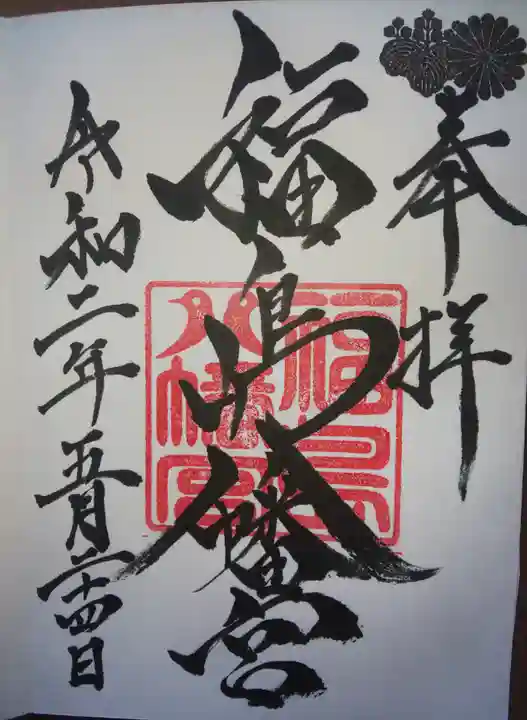 奉拝
福嶋八幡宮
福島八幡宮
令和二年五月二十四日